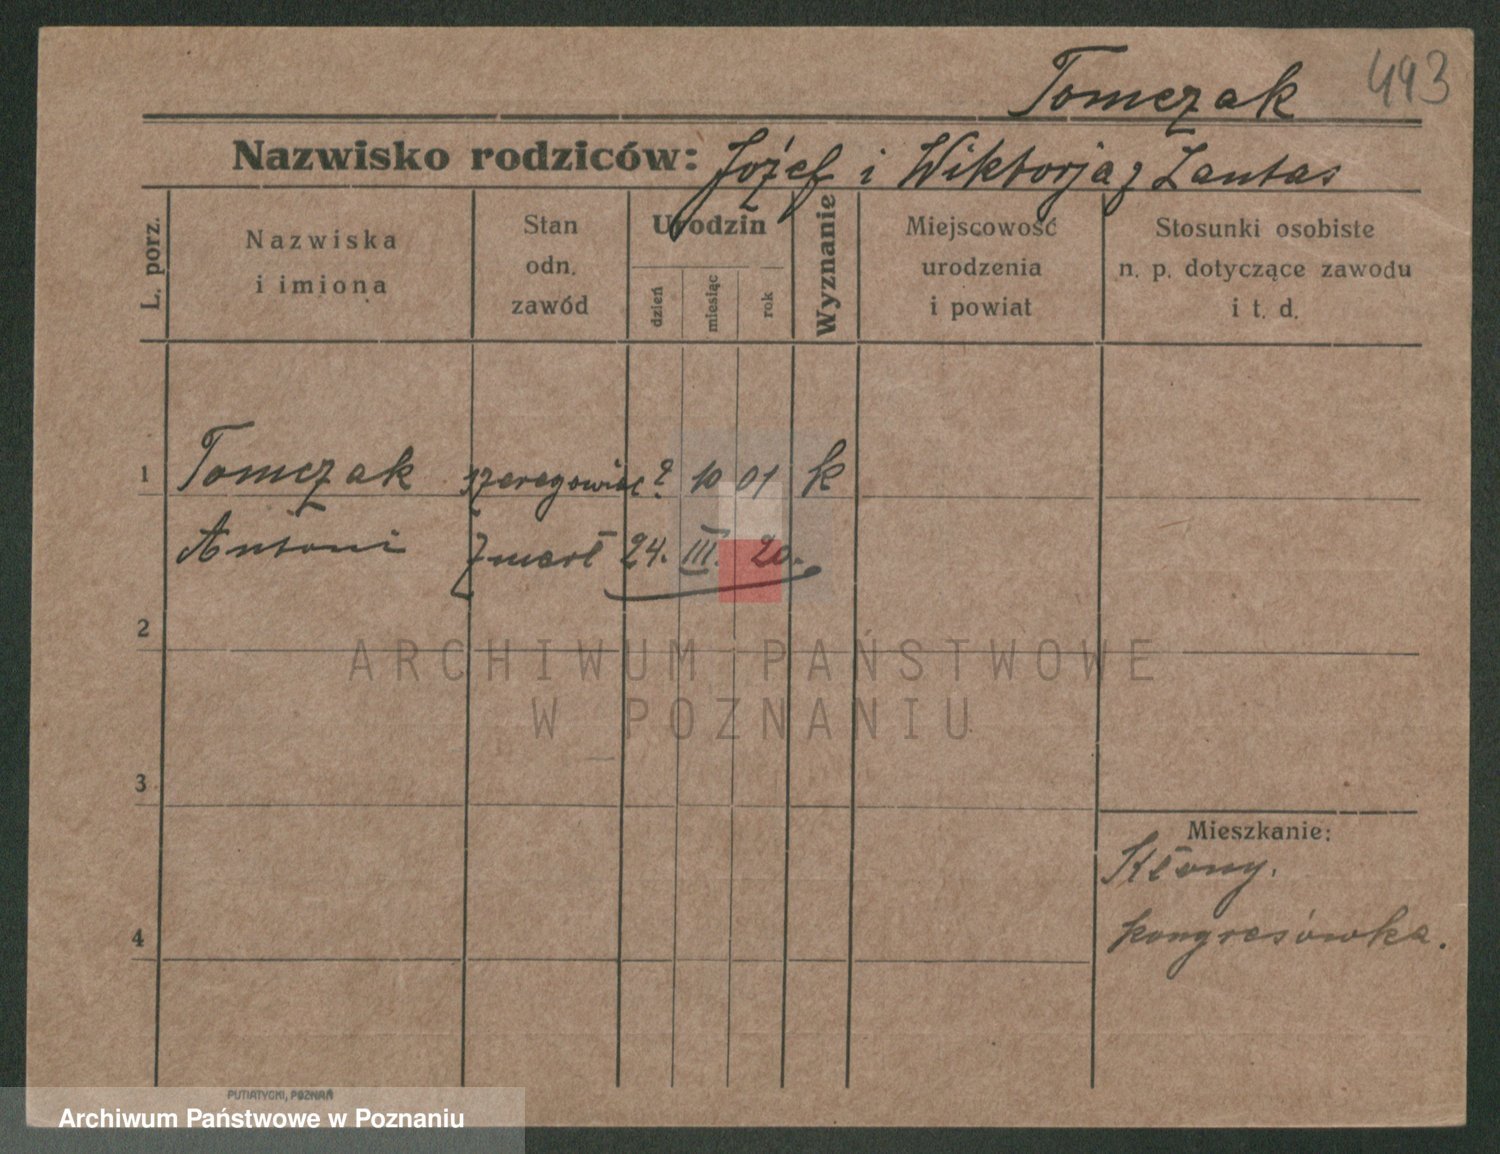 Tomczak 443
Nazwisko rodziców: Józef i Wiktorja z Lantas
L. porz.
Nazwiska
i imiona
Stan
odn.
zawód
Urodzin
dzień
miesiąc
rok
Wyznanie
Miejscowość
urodzenia
i powiat
Stosunki osobiste
n. p. dotyczące zawodu
i t. d.
1 Tomczak szeregowiec ? 10 01 k
Antoni zmarł 24. III. 20.
2
ARCHIWUM PAŃSTWOWE
W POZNANIU
3
Mieszkanie:
Kłony.
4 kongresówka.
PUTIATYCKI, POZNAŃ
Archiwum Państwowe w Poznaniu